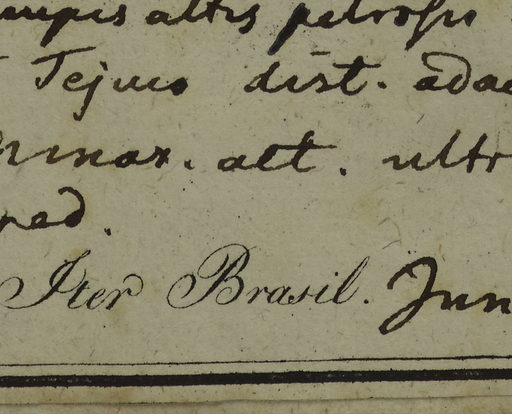 rupis altis petrosis
Tejuco dist. adac
max. alt. ultr
ped.
Iter Brasil. Jun